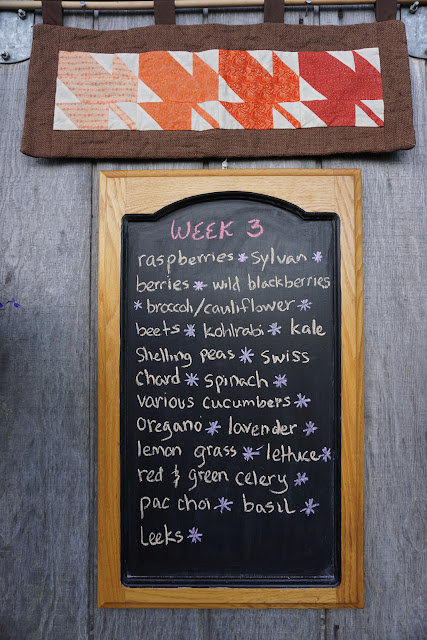 WEEK 3
raspberries * sylvan *
berries * wild blackberries
* broccoli/cauliflower *
beets * kohlrabi * kale
Shelling peas * swiss
chard * spinach *
various cucumbers *
Oregano * lavender *
lemon grass * lettuce *
red & green celery *
pac choi * basil *
Leeks *